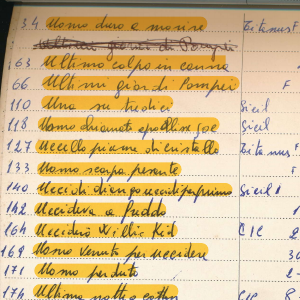 34 Uomo duro a morire Titanust
Ultimi giorni di Pompei
63 Ultimo colpo in canna
66 Ultimi giorni di Pompei F
110 Una su tredici Sicil
118 Uomo chiamato apocalisse Joe Sicil
127 Uccello piume di cristallo Titanus F
133 Uomo scarpa pesante
140 Uccidi Django uccidi per primo Sicil
142 Uccideva a freddo
164 Ucciderò Willie Kid CIC 2
169 Uomo venuto per uccidere
171 Uomo perduto 2
174 Ultima notte a Cottn CIC